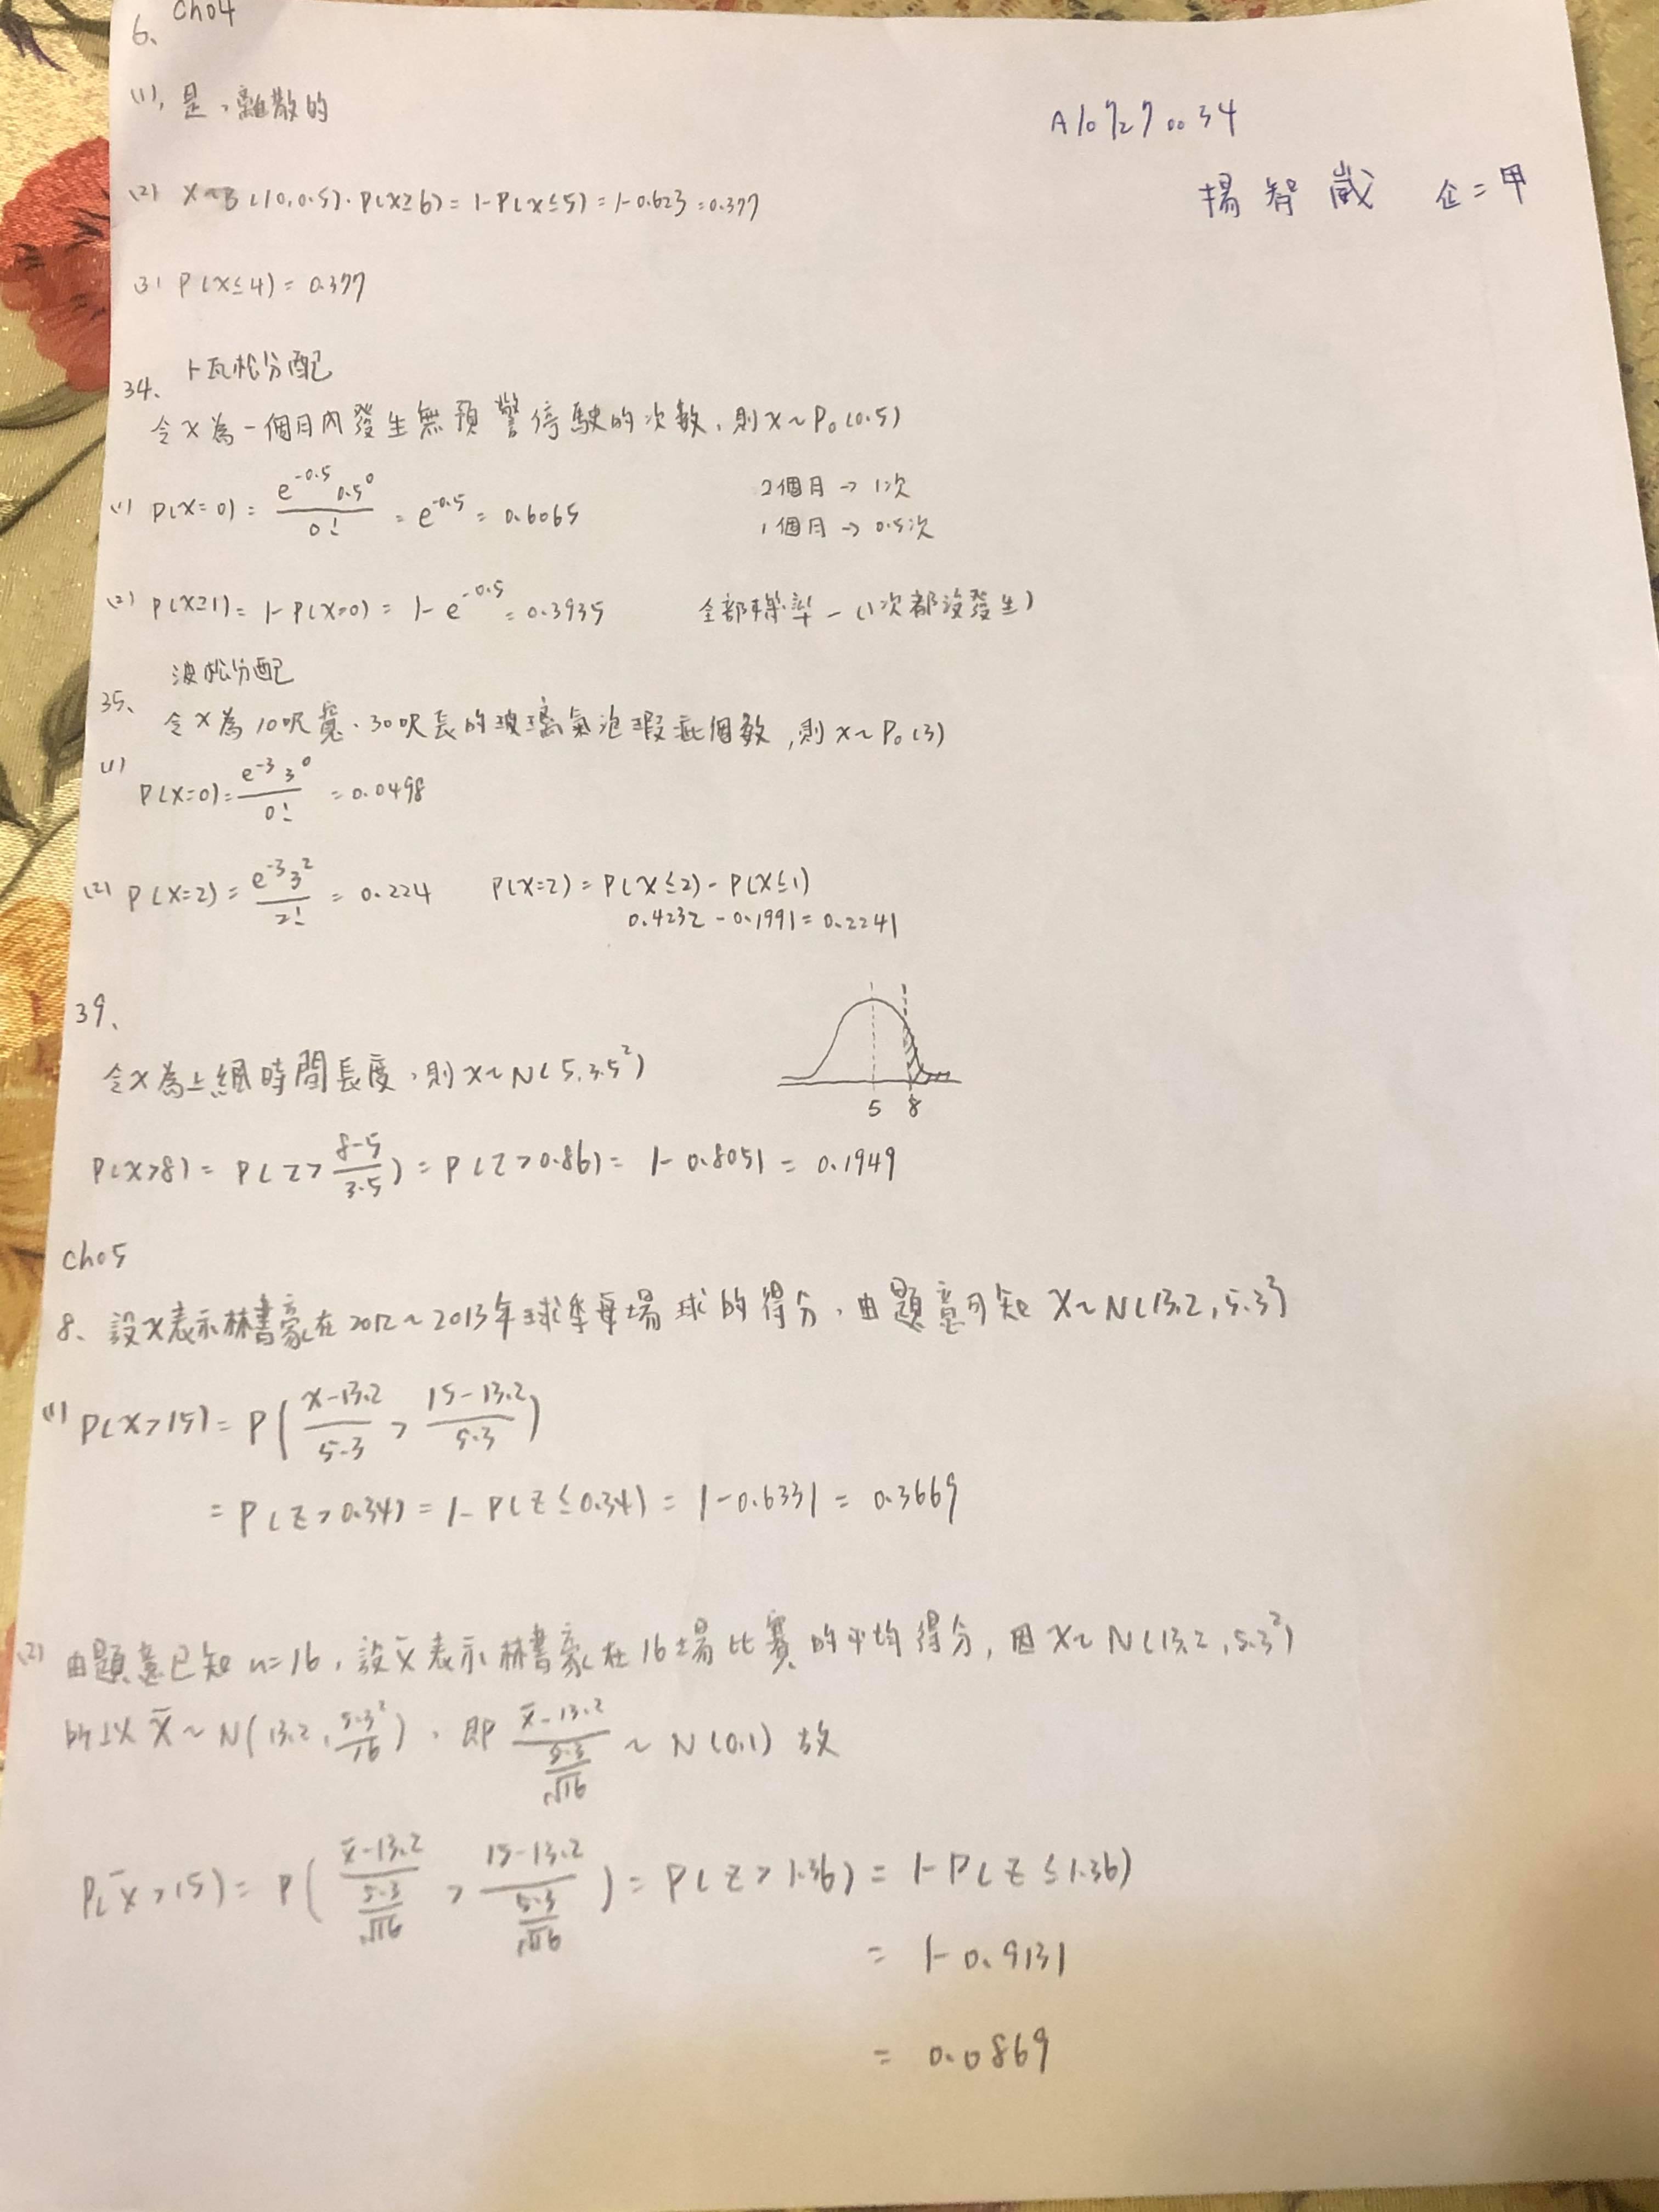 Ch04
6、
(1)、是、離散的
A107270034
楊智崴 企二甲
(2) X~B(10,0.5). P(X≥6) = 1-P(X≤5) = 1-0.623 = 0.377
(3) P(X≤4) = 0.377
34、卜瓦松分配
令X為一個月內發生無預警停駛的次數,則X~Po(0.5)
(1) P(X=0) = e^-0.5 0.5^0 / 0! = e^-0.5 = 0.6065
2個月→1次
1個月→0.5次
(2) P(X≥1) = 1-P(X=0) = 1-e^-0.5 = 0.3935 全部機率-(1次都沒發生)
35、波松分配
令X為10呎寬、30呎長的玻璃氣泡瑕疵個數,則X~Po(3)
(1) P(X=0) = e^-3 3^0 / 0! = 0.0498
(2) P(X=2) = e^-3 3^2 / 2! = 0.224 P(X=2) = P(X≤2) - P(X≤1)
0.4232 - 0.1991 = 0.2241
39、
令X為上網時間長度,則X~N(5,3.5²)
5 8
P(X>8) = P(Z > 8-5 / 3.5) = P(Z>0.86) = 1-0.8051 = 0.1949
Ch05
8、設X表示林書豪在2012~2013年球季每場球的得分,由題意可知 X~N(13.2,5.3²)
(1) P(X>15) = P(X-13.2 / 5.3 > 15-13.2 / 5.3)
= P(Z>0.34) = 1-P(Z≤0.34) = 1-0.6331 = 0.3669
(2) 由題意已知n=16,設X̄表示林書豪在16場比賽的平均得分,因X~N(13.2,5.3²)
所以X̄~N(13.2, 5.3²/16),即 X̄-13.2 / (5.3/√16) ~ N(0.1) 故
P(X̄>15) = P(X̄-13.2 / (5.3/√16) > 15-13.2 / (5.3/√16)) = P(Z>1.36) = 1-P(Z≤1.36)
= 1-0.9131
= 0.0869